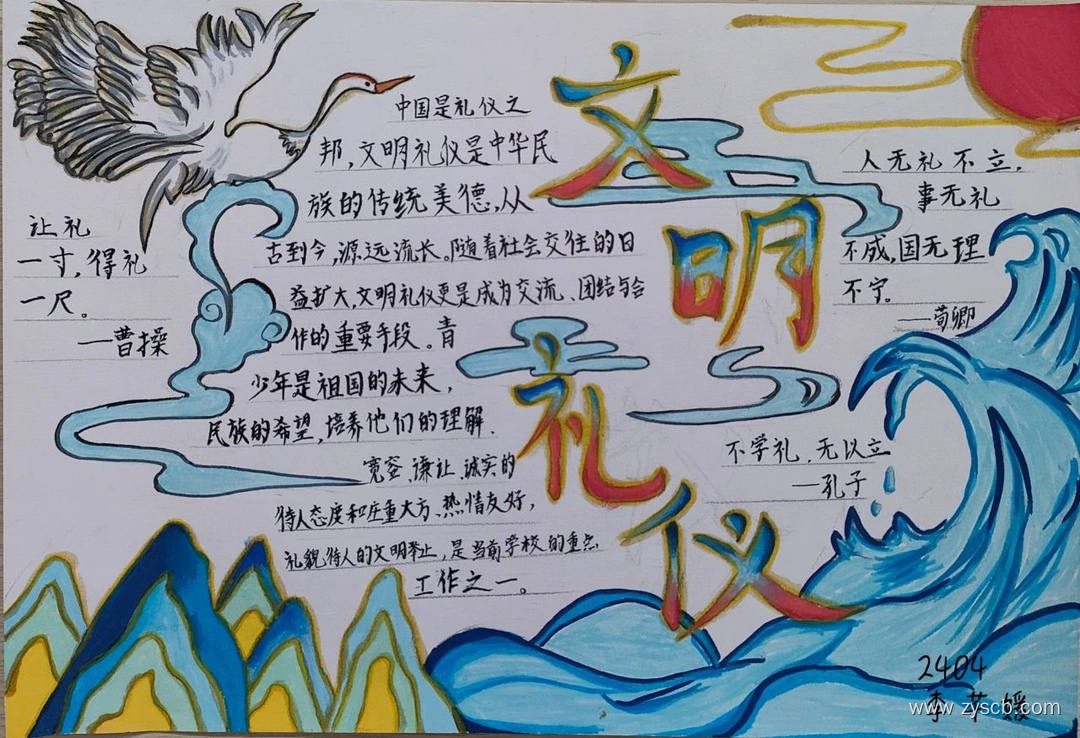 文明
礼仪
中国是礼仪之
邦,文明礼仪是中华民
族的传统美德,从
古到今,源远流长。随着社会交往的日
益扩大,文明礼仪更是成为交流、团结与合
作的重要手段。青
少年是祖国的未来,
民族的希望,培养他们的理解.
宽容、谦让、诚实的
待人态度和庄重大方、热情友好,
礼貌待人的文明举止,是当前学校的重点
工作之一。
让礼
一寸,得礼
一尺。
—曹操
人无礼不立,
事无礼
不成,国无理
不宁。
—荀卿
不学礼,无以立
—孔子
2404
李
www.zyscb.com